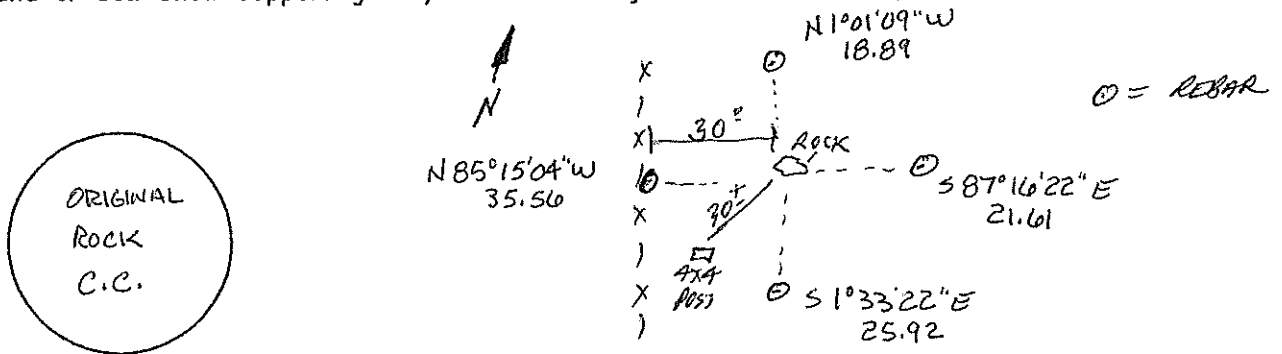 N 1°01'09" W
18.89
⊙ = REBAR
N
30±
ROCK
N 85°15'04" W
35.56
S 87°16'22" E
21.61
30±
4x4
POST
S 1°33'22" E
25.92
ORIGINAL
ROCK
C.C.